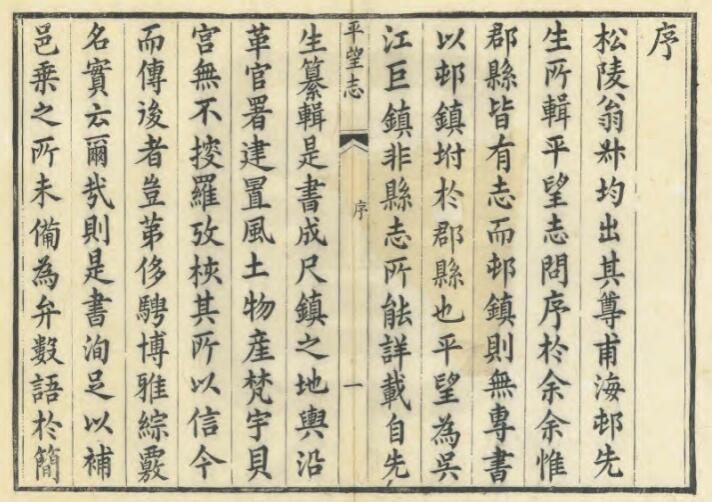 序
松陵翁叔均出其尊甫海邨先
生所輯平望志問序於余余惟
郡縣皆有志而邨鎮則無專書
以邨鎮坿於郡縣也平望為吳
江巨鎮非縣志所能詳載自先
平望志
序
一
生纂輯是書成尺鎮之地輿沿
革官署建置風土物產梵宇貝
宮無不搜羅攷核其所以信今
而傳後者豈苐侈騁博雅綜覈
名實云爾㢤則是書洵足以補
邑乗之所未備為弁數語於簡